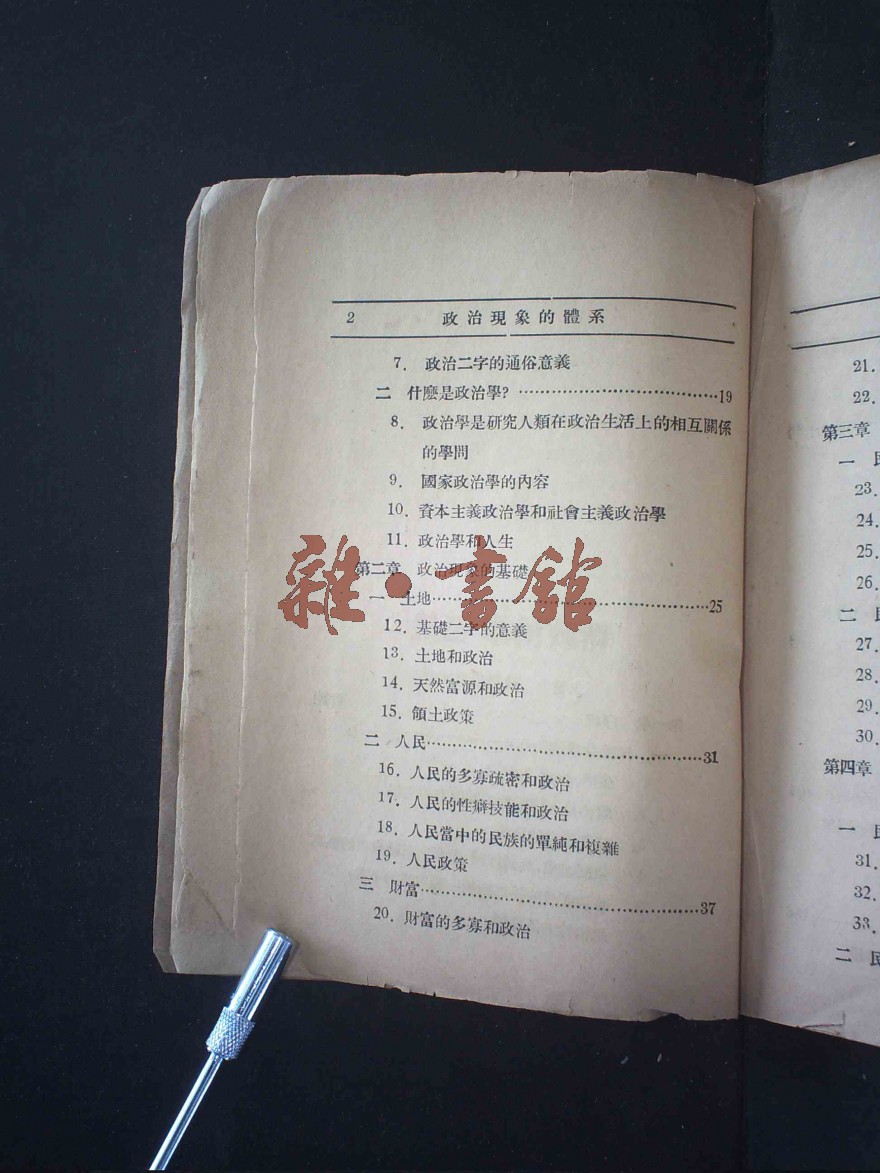 2 政治現象的體系
7. 政治二字的通俗意義
二 什麼是政治學? ……………………………19
8. 政治學是研究人類在政治生活上的相互關係
的學問
9. 國家政治學的內容
10. 資本主義政治學和社會主義政治學
11. 政治學和人生
第二章 政治現象的基礎
一 土地……………………………………25
12. 基礎二字的意義
13. 土地和政治
14. 天然富源和政治
15. 領土政策
二 人民……………………………………31
16. 人民的多寡疏密和政治
17. 人民的性癖技能和政治
18. 人民當中的民族的單純和複雜
19. 人民政策
三 財富……………………………………37
20. 財富的多寡和政治
雜·書館
21.
22.
第三章
一
23.
24.
25.
26.
二
27.
28.
29.
30.
第四章
一
31.
32.
33.
二